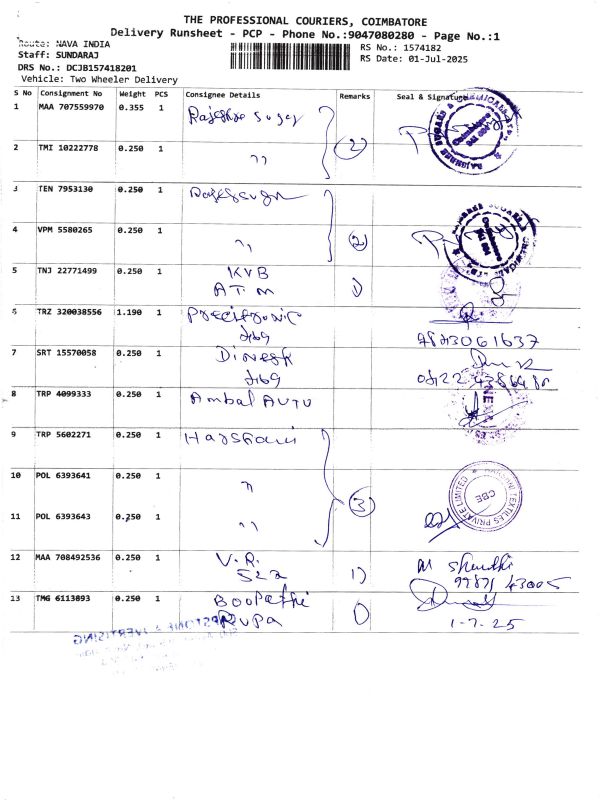 THE PROFESSIONAL COURIERS, COIMBATORE
Delivery Runsheet - PCP - Phone No.:9047080280 - Page No.:1
Route: NAVA INDIA
RS No.: 1574182
Staff: SUNDARAJ
RS Date: 01-Jul-2025
DRS No.: DCJB157418201
Vehicle: Two Wheeler Delivery
S No Consignment No Weight PCS Consignee Details Remarks Seal & Signature
1 MAA 707559970 0.355 1
2 TMI 10222778 0.250 1 " (2)
3 TEN 7953130 0.250 1
4 VPM 5580265 0.250 1 " (2)
5 TNJ 22771499 0.250 1 KVB
ATM
6 TRZ 320038556 1.190 1
7 SRT 15570058 0.250 1 Dinesh
8 TRP 4099333 0.250 1 Ambal Auto
9 TRP 5602271 0.250 1 Harshani
10 POL 6393641 0.250 1 "
11 POL 6393643 0.250 1 " (3)
HARSHINI TEXTILES PRIVATE LIMITED
CBE
12 MAA 708492536 0.250 1 V.R. 1)
522
13 TMG 6113893 0.250 1 Boopathi
Rupa
1-7-25